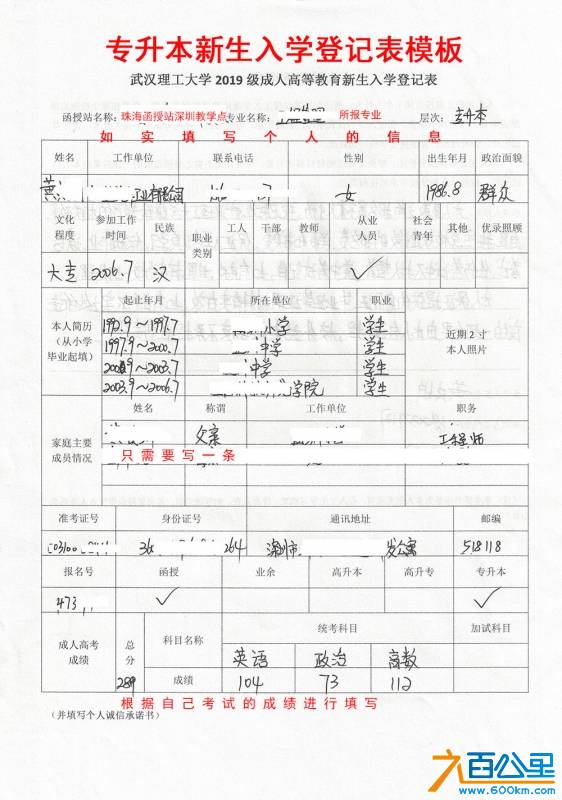 专升本新生入学登记表模板
武汉理工大学2019级成人高等教育新生入学登记表
函授站名称：珠海函授站深圳教学点 专业名称： 所报专业 层次：专升本
如实填写个人的信息
姓名 工作单位 联系电话 性别 出生年月 政治面貌
黄 女 1986.8 群众
文化程度 参加工作时间 民族 职业类别 工人 干部 教师 从业人员 社会青年 其他 优录照顾
大专 2006.7 汉 ✓
本人简历（从小学毕业起填） 起止年月 所在单位 职业 近期2寸本人照片
1992.9～1997.7 小学 学生
1997.9～2000.7 中学 学生
2000.9～2003.7 中学 学生
2003.9～2006.7 学院 学生
家庭主要成员情况 姓名 称谓 工作单位 职务
父亲 工程师
只需要写一条
准考证号 身份证号 通讯地址 邮编
264 深圳市 公寓 518118
报名号 函授 业余 高升本 高升专 专升本
473 ✓ ✓
成人高考成绩 总分 科目名称 统考科目 加试科目
英语 政治 高数
289 成绩 104 73 112
根据自己考试的成绩进行填写
（并填写个人诚信承诺书）
六百公里
www.600km.com